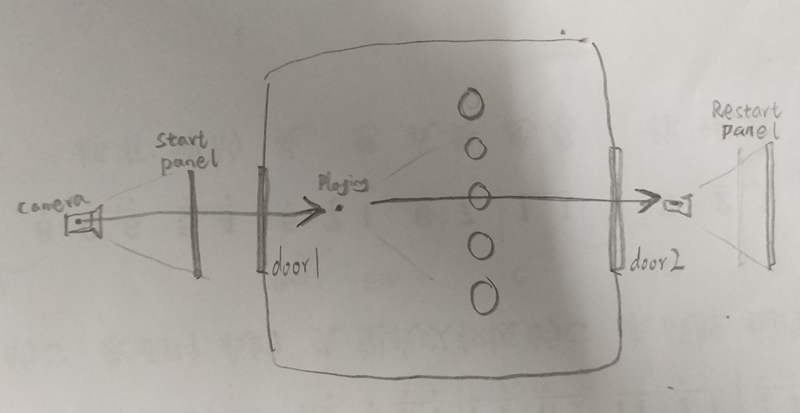 camera
start
panel
door1
Playing
door2
Restart
panel